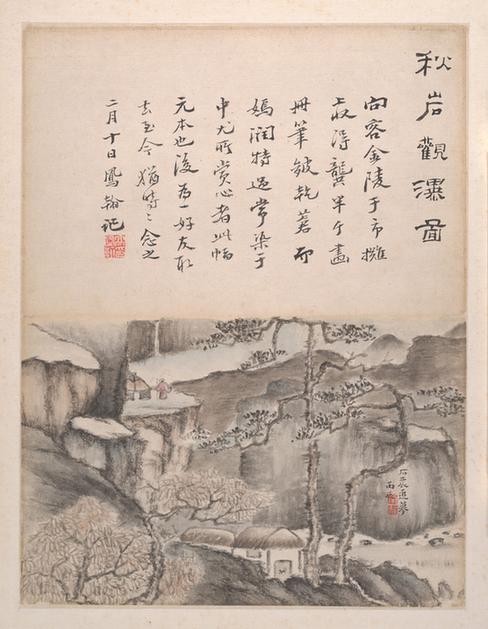 秋岩觀瀑啚
向客金陵于市攤
得龔半千畫
冊筆皴乾蒼而
嫣潤特過常染于
中尤所賞心者此幅
元本也後為一好友取
去至今猶時〻念之
二月十日鳳翰記